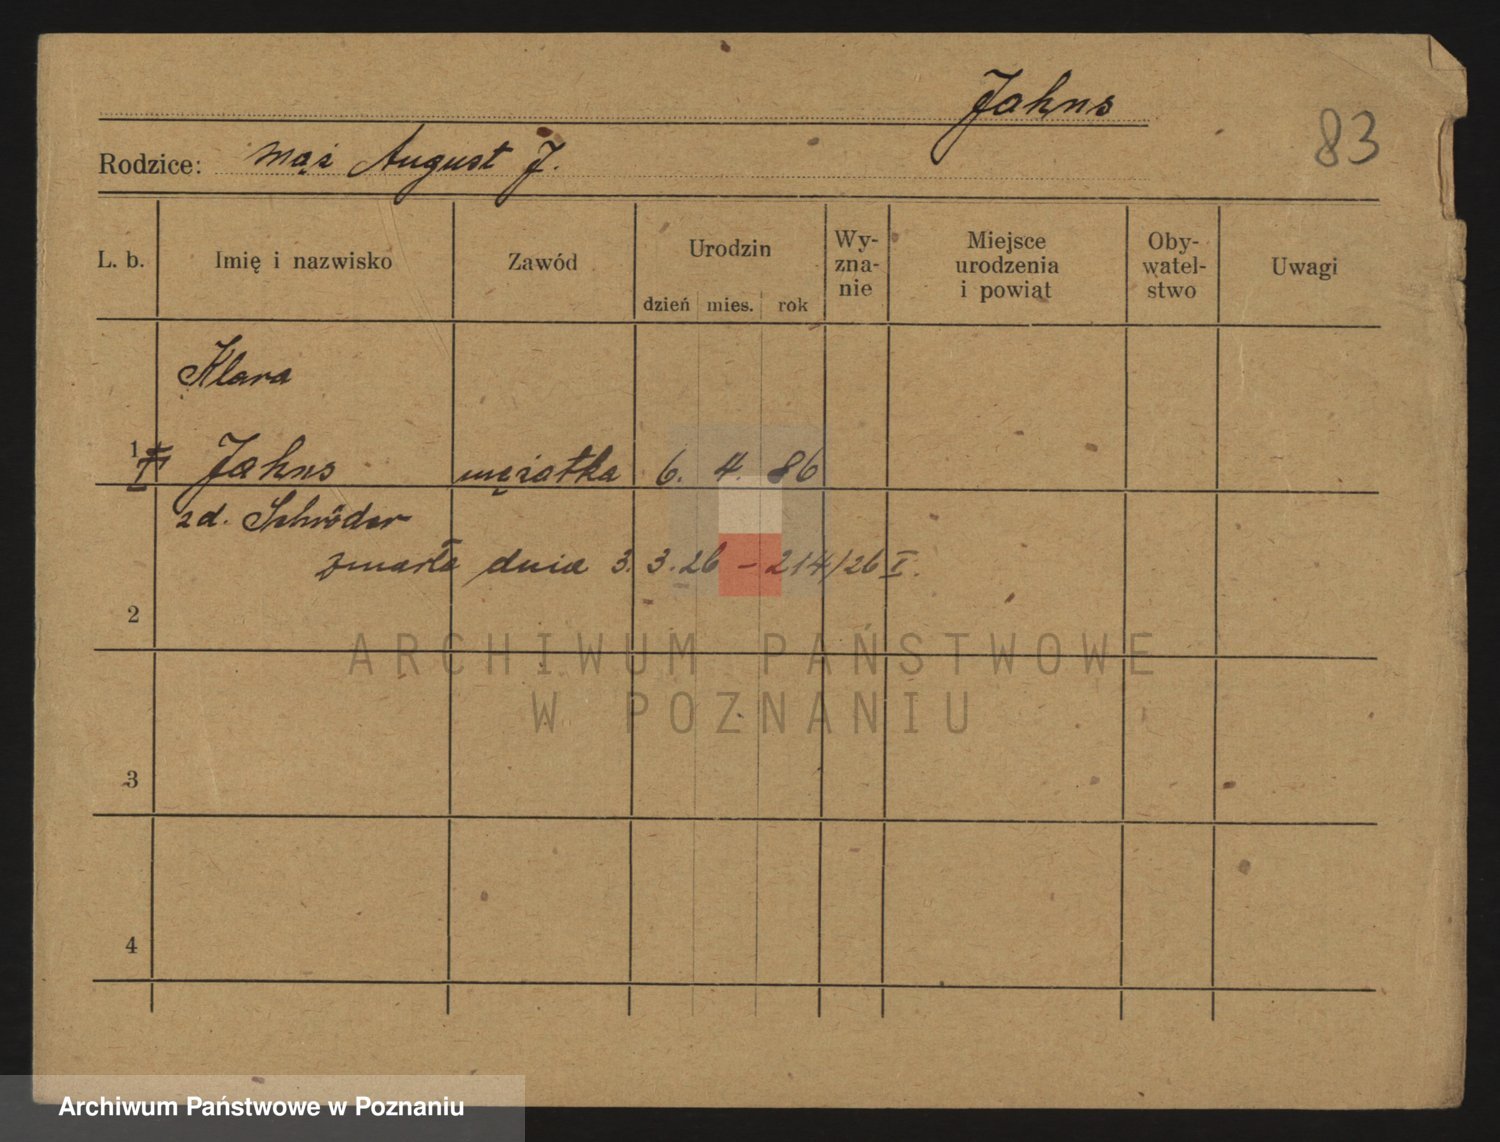 Jahns
83
Rodzice: mąż August J.
L. b. Imię i nazwisko Zawód Urodzin dzień mies. rok Wy-zna-nie Miejsce urodzenia i powiat Oby-watel-stwo Uwagi
Klara
1 Jahns mężatka 6. 4. 86
zd. Schröder
zmarła dnia 3. 3. 26 – 214/26 I.
2
ARCHIWUM PAŃSTWOWE
W POZNANIU
3
4
Archiwum Państwowe w Poznaniu